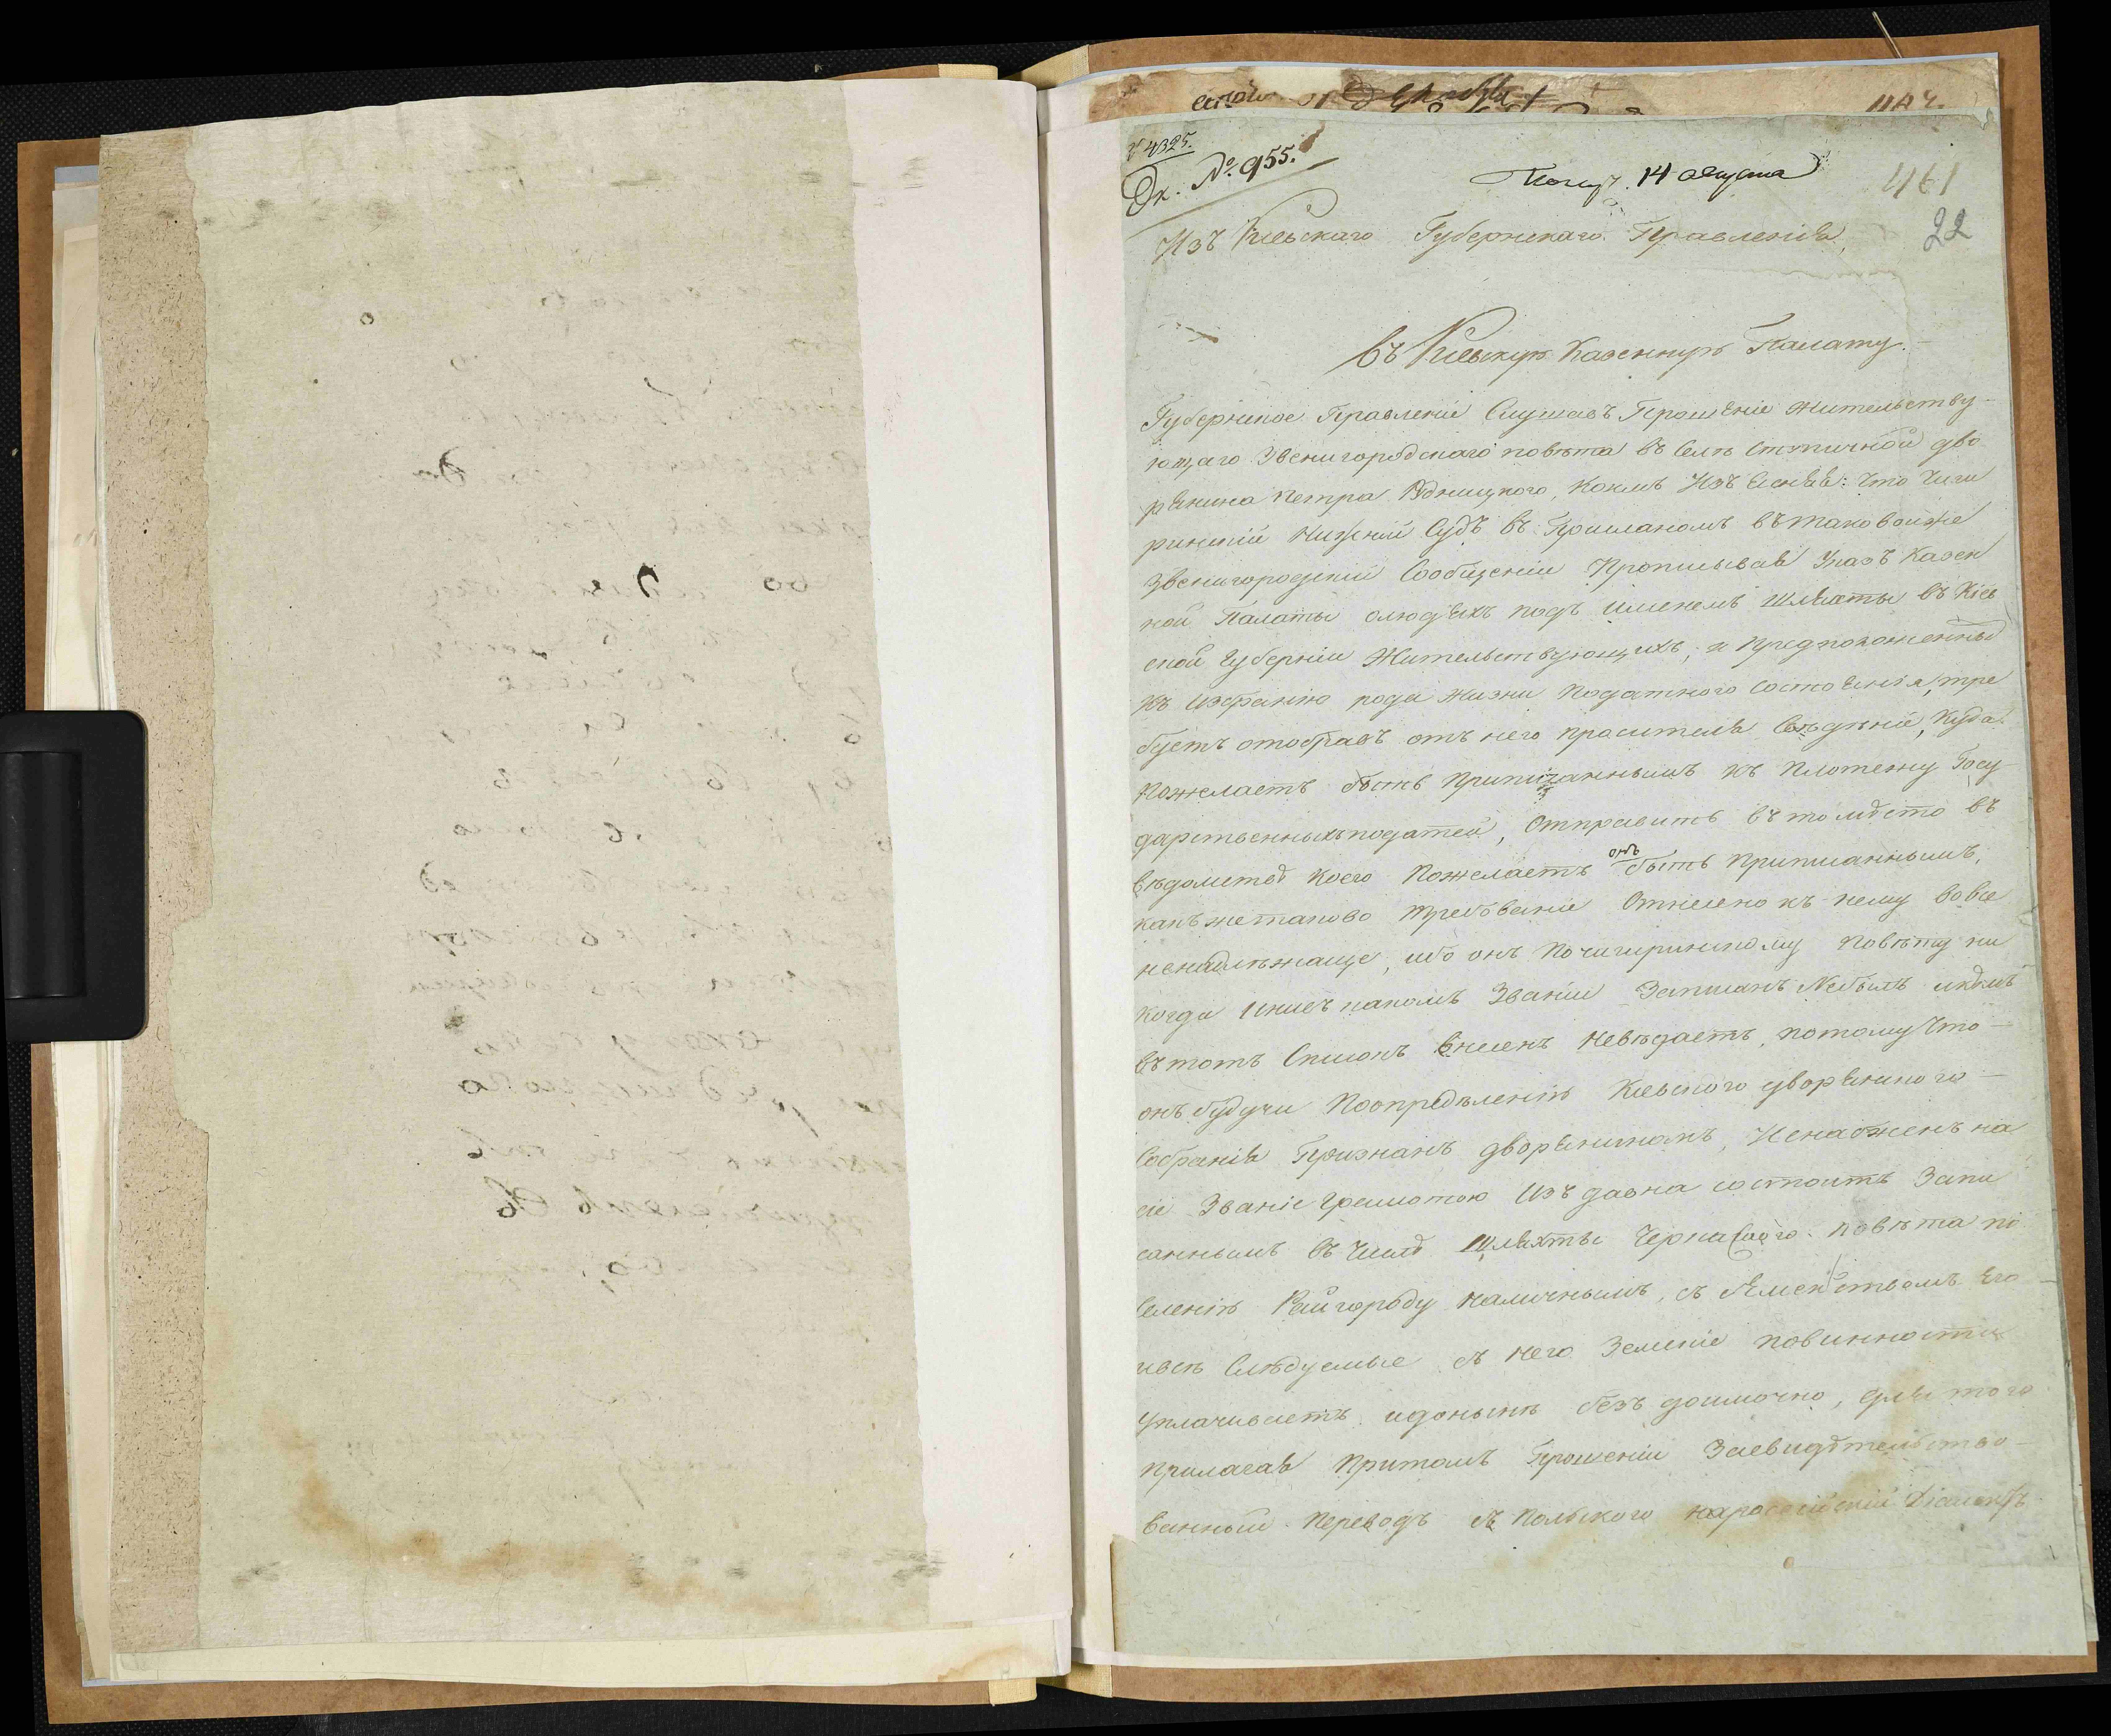 № 4325.
Вх. № 955.
Получ. 14 августа
461
22
Изъ Киевскаго Губернскаго Правления,
Въ Киевскую Казенную Палату.
Губернское Правление Слушавъ Прошение жительству-
ющаго Звенигородскаго повѣта въ Селѣ дво
рянина Петра коимъ Изъясняя: что Чиги
ринский Нижний Судъ въ Присланомъ въ таковой же
Звенигородский Сообщении Прописывая Указъ Казен
ной Палаты олюдяхъ подъ именемъ шляхты въ Киев
ской Губернии Жительствующихъ, и предположенны
къ избранию рода жизни Податного Состояния, тре
буетъ отобравъ отъ него просителя Свѣдѣние, куда
Пожелаетъ быть приписаннымъ къ Платежу Госу
дарственныхъ податей, Отправить въ то мѣсто въ
вѣдомство коего Пожелаетъ онъ быть приписаннымъ,
какъ же таково требование Отнесено къ нему вовсе
ненадлежаще, ибо онъ По чигиринскому Повѣту ни
когда инивъ какомъ Звании Записанъ Небылъ икѣмъ
въ тотъ Списокъ внесенъ Невѣдаетъ, потому Что
онъ будучи Поопредѣлению Киевского дворянского
Собрания Признанъ дворяниномъ, Иснабженъ на
сие Звание грамотою Издавна состоитъ Запи
саннымъ въ Числѣ шляхты Черкаского повѣта по
Селению Райгороду наличнымъ, съ Семействомъ Его
ивсѣ Слѣдуемые съ него Земские повинности
уплачиваетъ идонынѣ безъ доимочно, для того
прилагая Притомъ Прошении Засвидѣтельство-
ванный переводъ съ Польского нароссийский Диалектъ